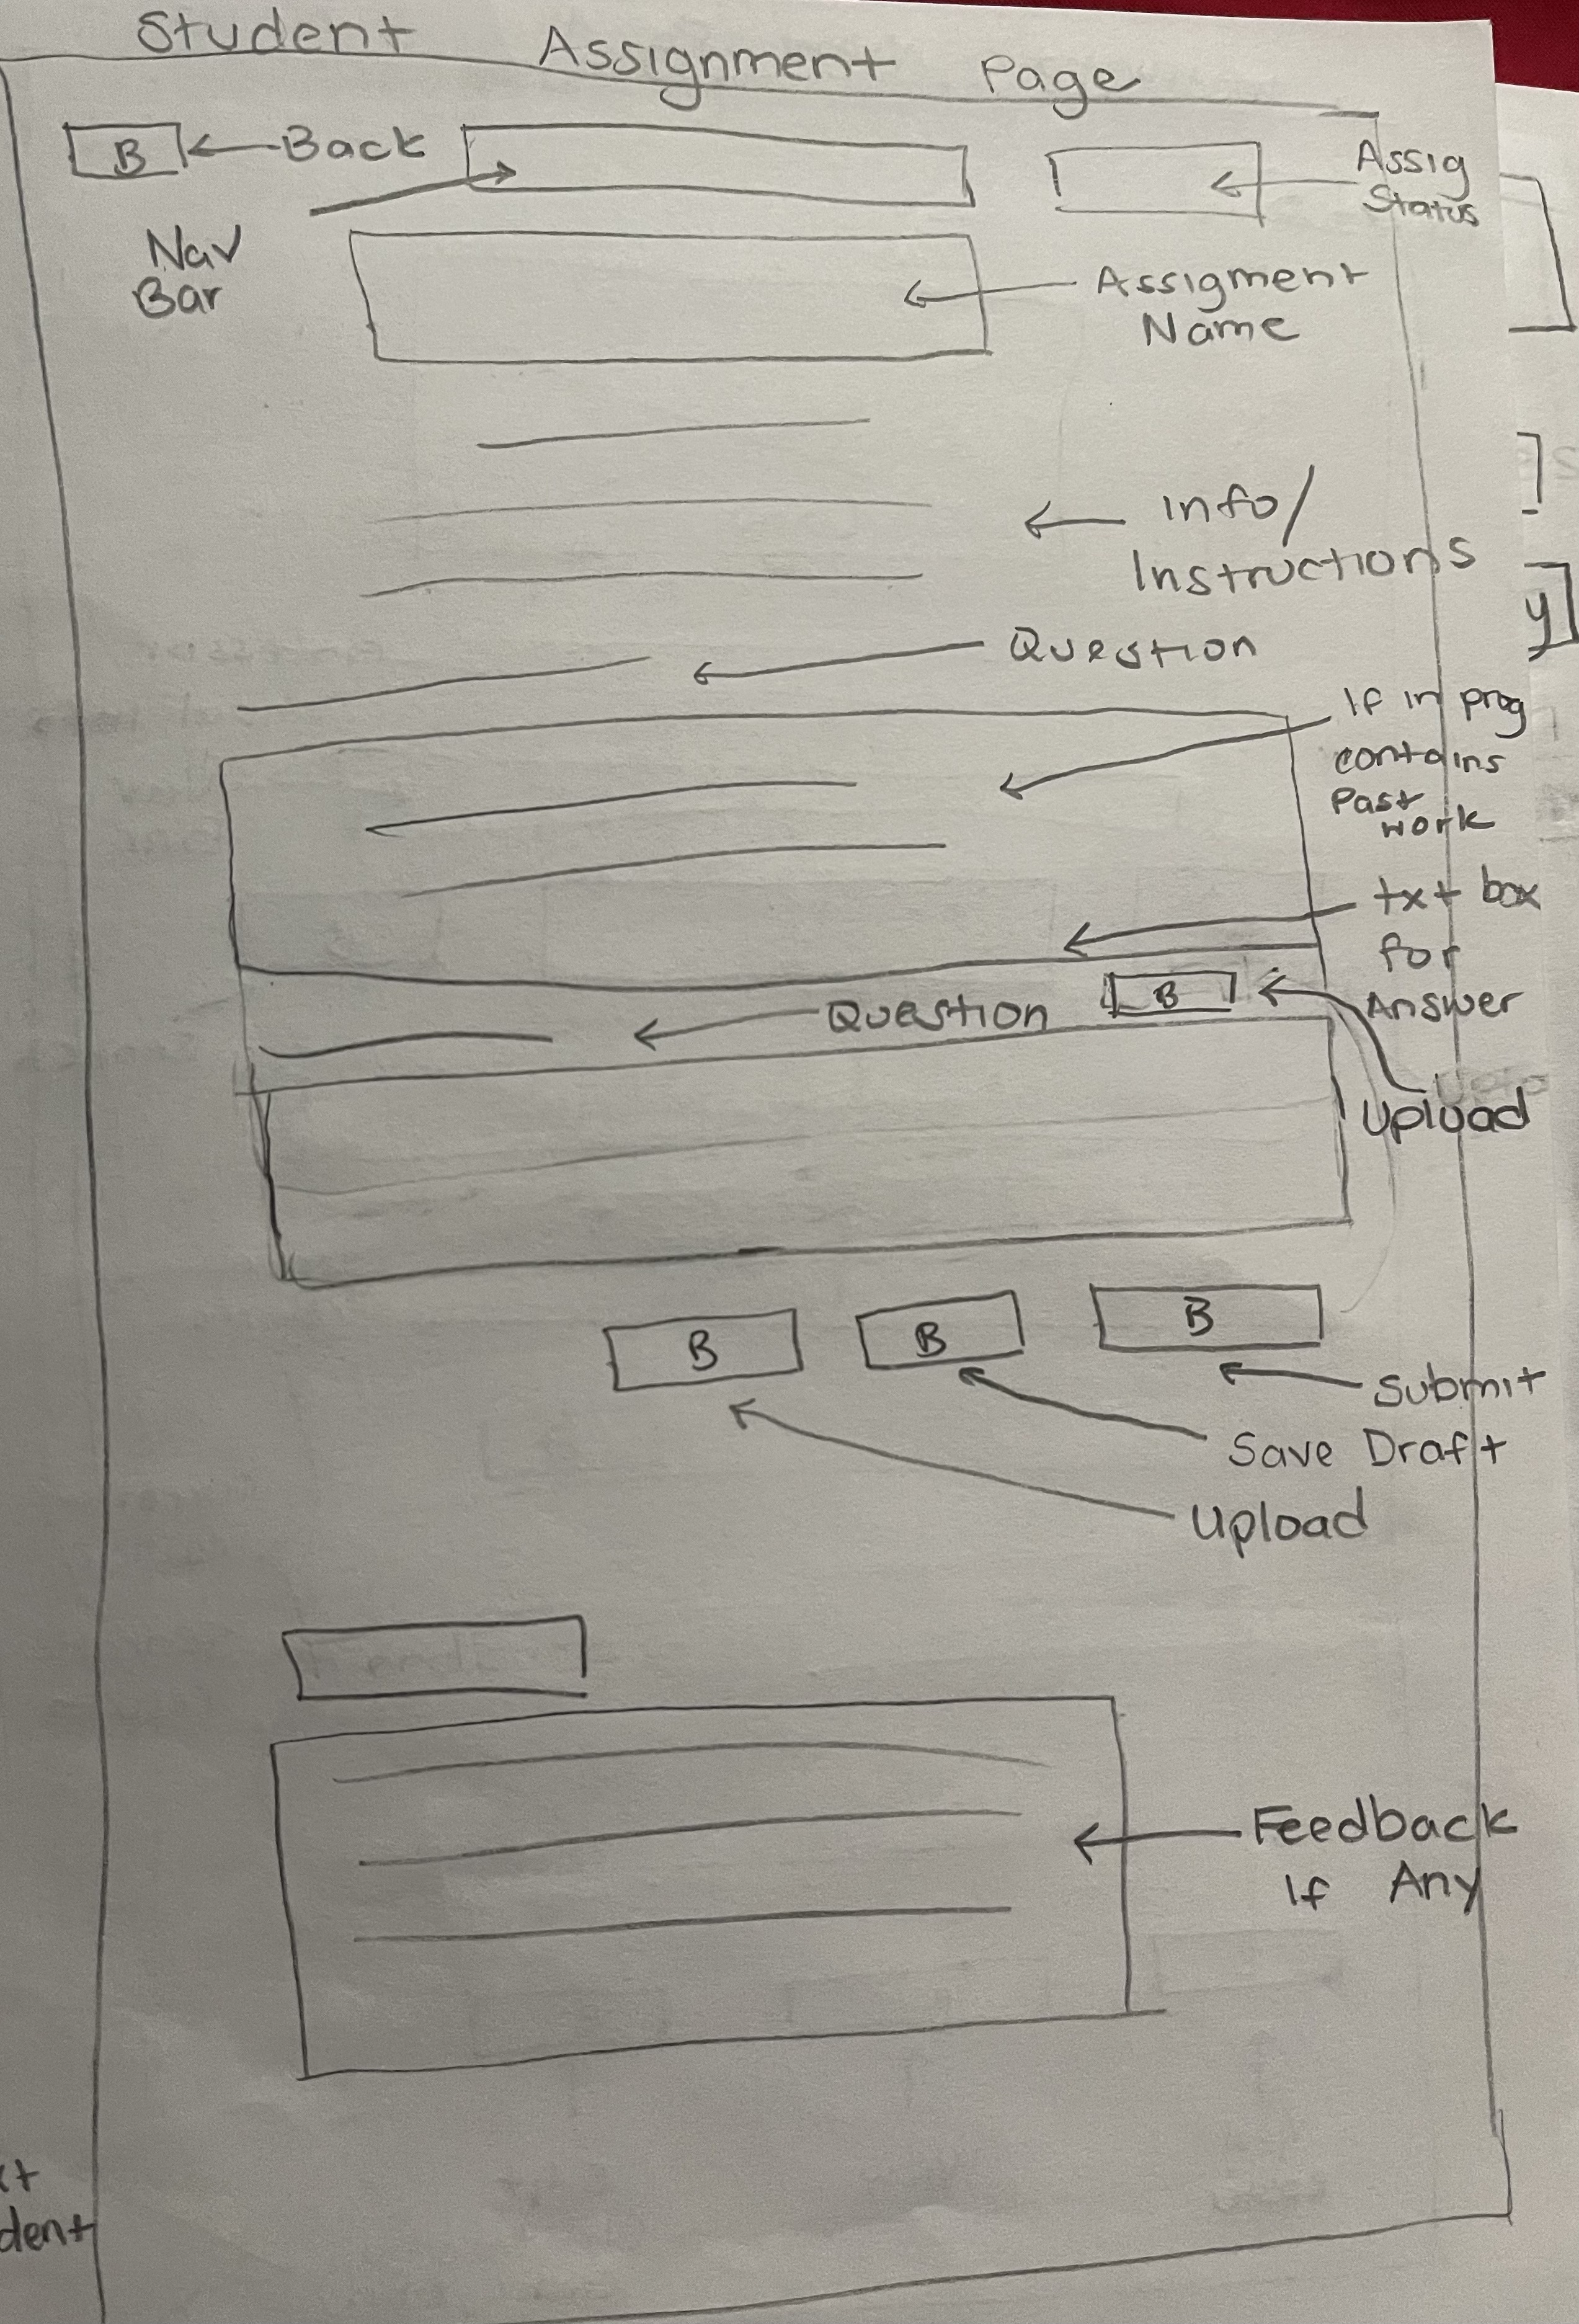 Student Assignment Page
B
Back
Assig
Status
Nav
Bar
Assigment
Name
Info/
Instructions
Question
If in prog
contains
Past
work
txt box
for
Answer
Question
B
Upload
B
B
B
Submit
Save Draft
Upload
Feedback
If Any
dent
y